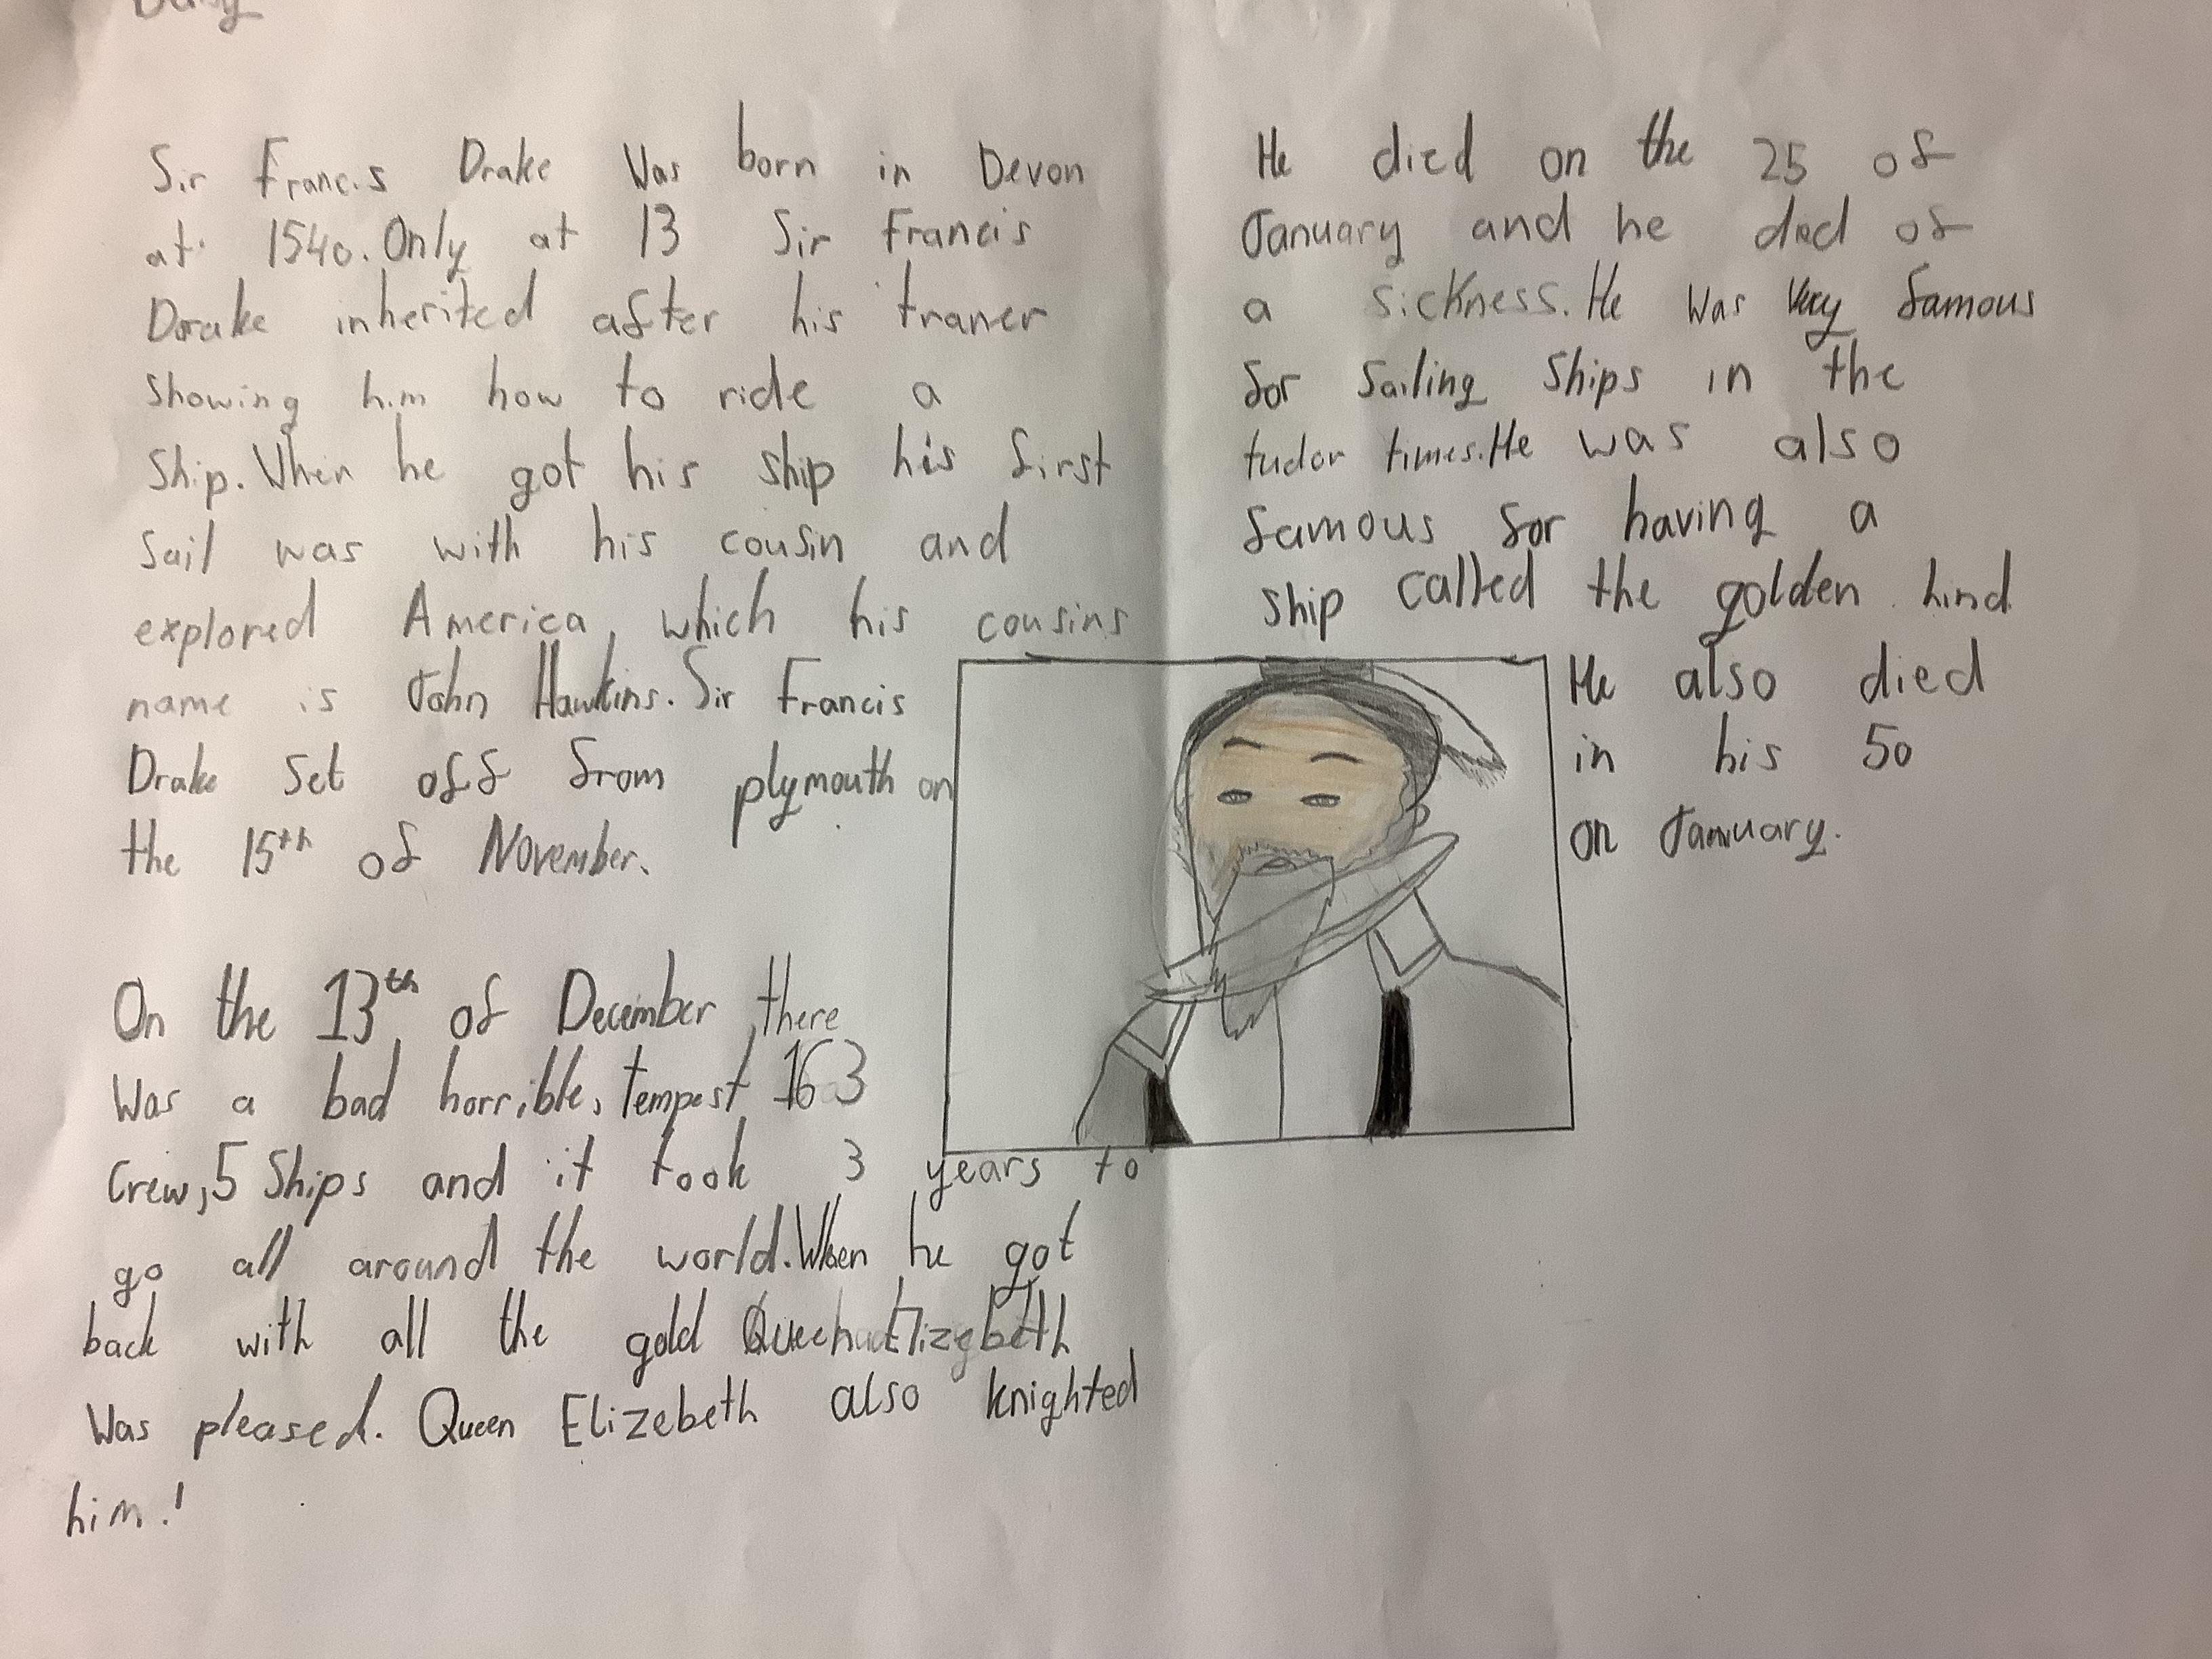 Sir Francis Drake Was born in Devon
at 1540. Only at 13 Sir Francis
Drake inherited after his traner
showing him how to ride a
Ship. When he got his ship his first
Sail was with his cousin and
explored America, which his cousins
name is John Hawkins. Sir Francis
Drake Set off from plymouth on
the 15th of November.
On the 13th of December, there
Was a bad horrible, tempest, 163
Crew, 5 Ships and it took 3 years to
go all around the world. When he got
back with all the gold Queen Elizebeth
Was pleased. Queen Elizebeth also knighted
him!
He died on the 25 of
January and he died of
a sickness. He Was Very famous
for Sailing Ships in the
tudor times. He was also
famous for having a
ship called the golden hind
He also died
in his 50
on January.